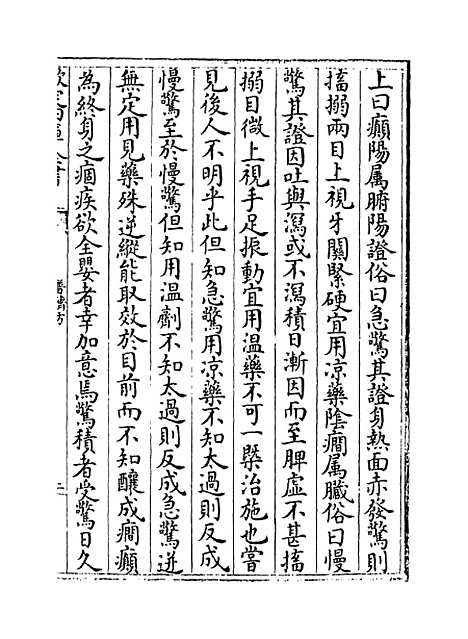 上曰癲陽属腑陽證俗曰急驚其證身熱面赤發驚則
搐搦兩目上視牙關緊硬宜用凉藥陰癎属臟俗曰慢
驚其證因吐與瀉或不瀉積日漸因而至脾虚不甚搐
搦目微上視手足振動宜用温藥不可一槩治施也嘗
見後人不明乎此但知急驚用凉藥不知太過則反成
慢驚至於慢驚但知用温劑不知太過則反成急驚迸
無定用見藥殊逆縱能取效於目前而不知釀成癎癲
為終身之痼疾欲全嬰者幸加意焉驚積者受驚日久
普濟方
二